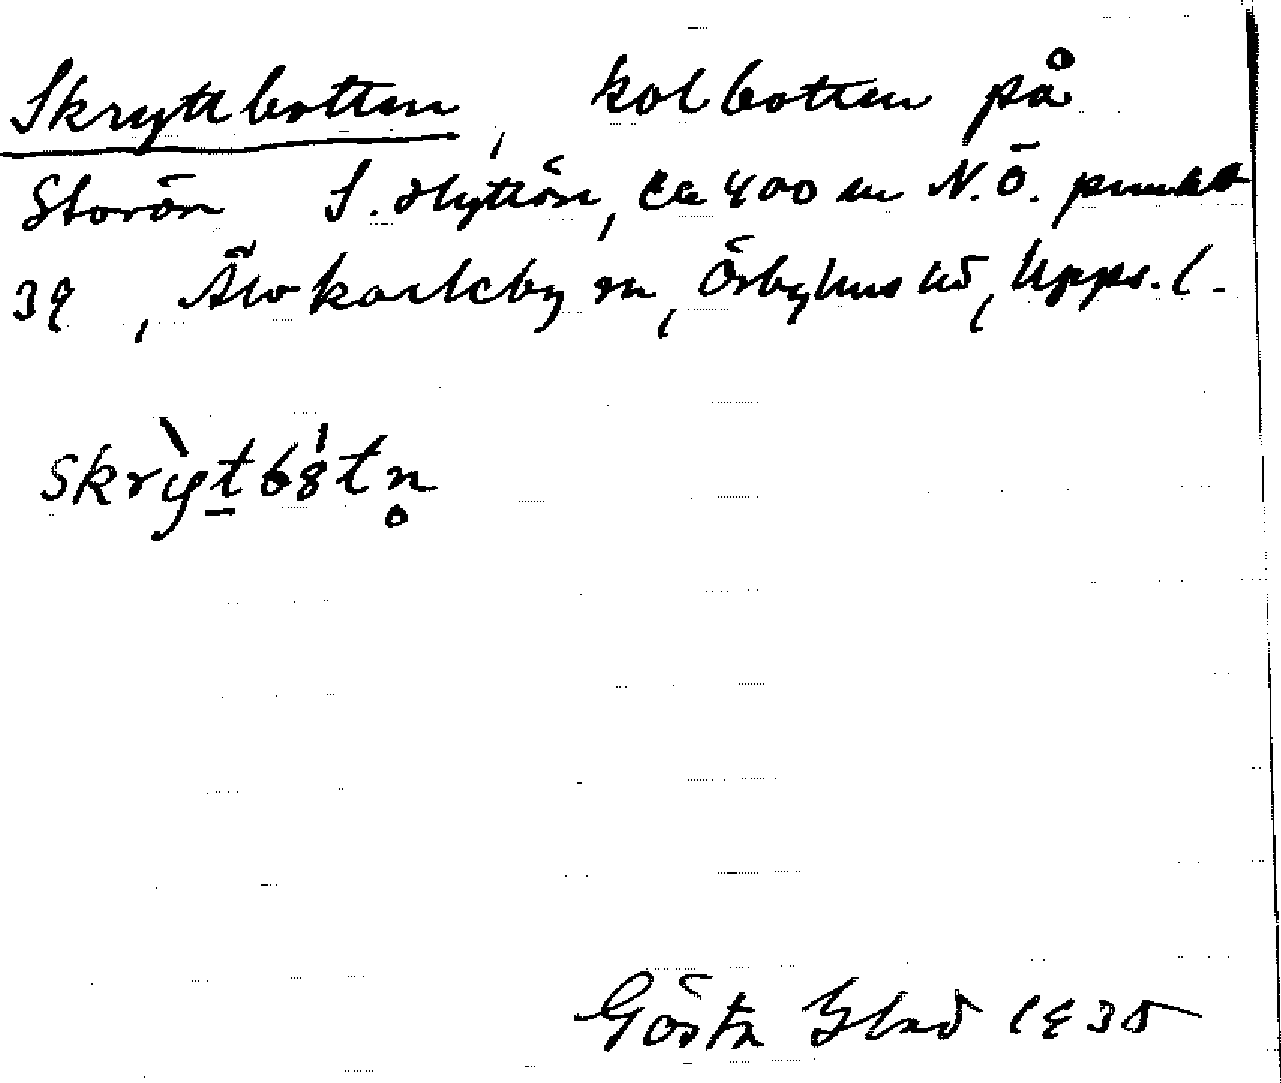 Skryttbotten, kolbotten på
Storön S. Hyttön, ca 400 m N.Ö. punkt
39, Älvkarleby sn, Örbyhus hd, Upps. l.
skrỳtb8́tn̥
Gösta 1935